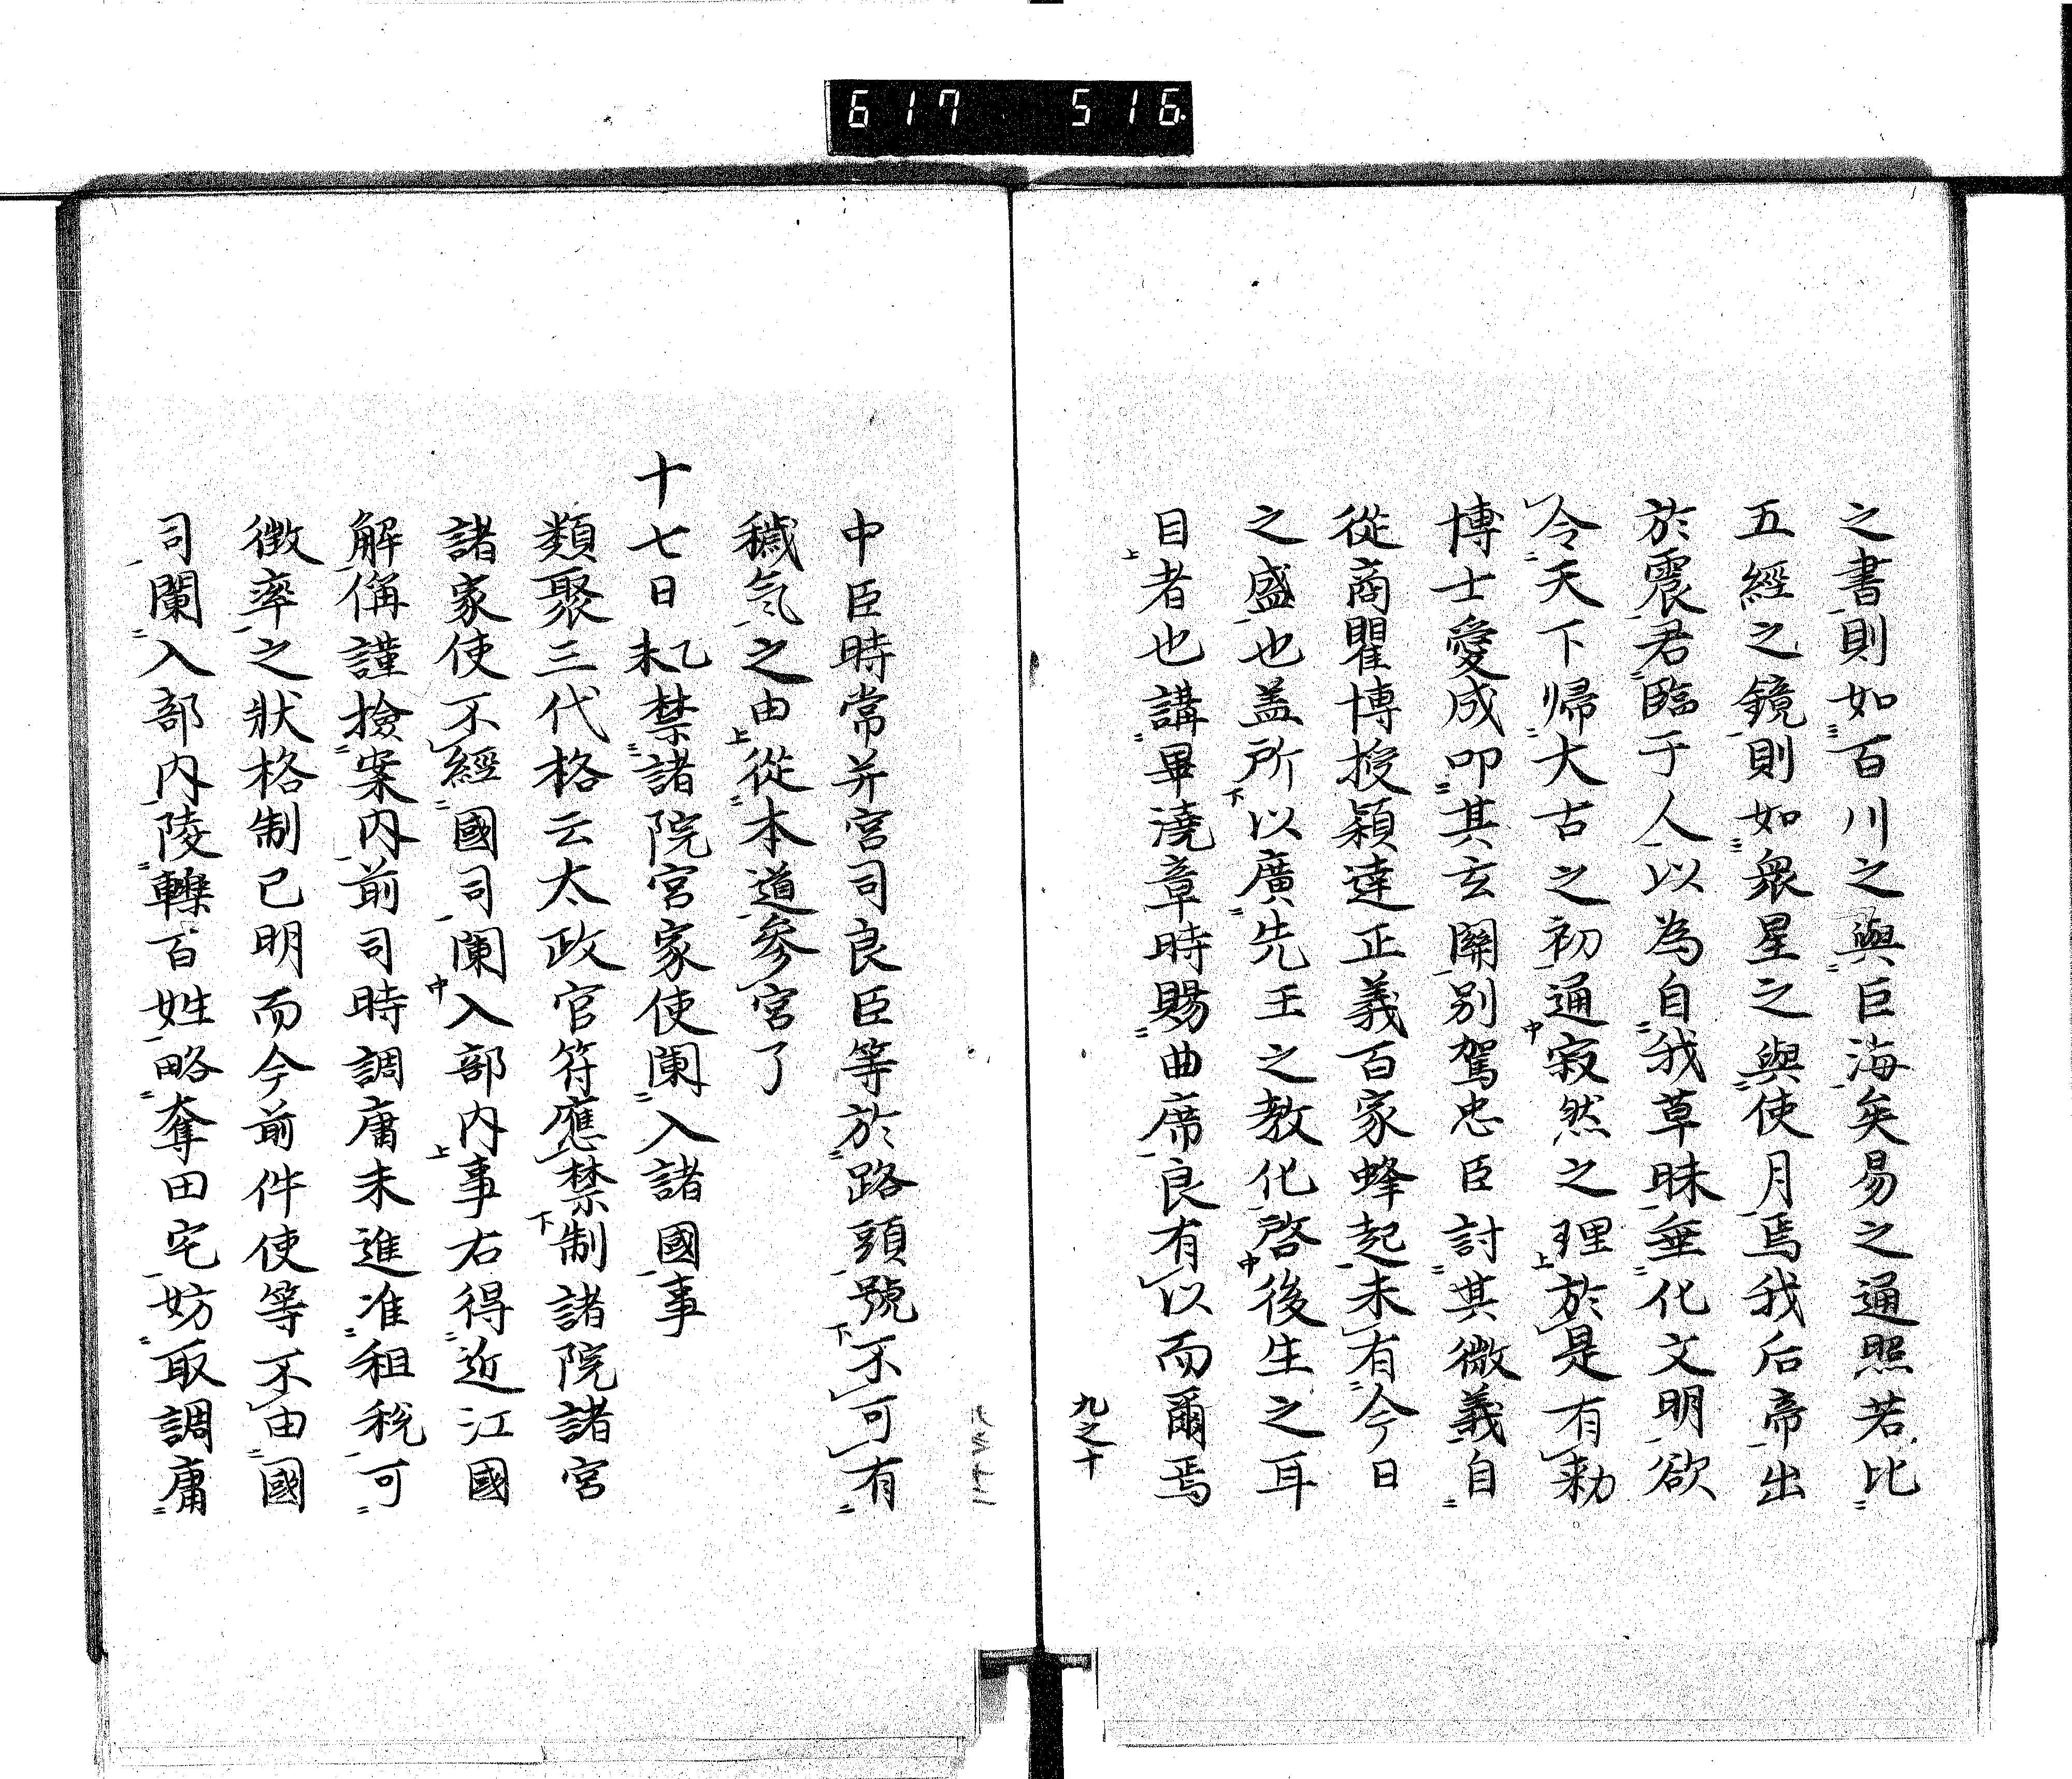 617 516
之書則如百川之與巨海矣易之通照若比
五經之鏡則如衆星之與使月焉我后帝出
於震君臨于人以為自我草昧垂化文明欲
令天下帰大古之初通寂然之理於是有勅
博士愛成叩其玄關別駕忠臣討其微義自
從商瞿博授穎達正義百家蜂起未有今日
之盛也盖所以廣先王之教化啓後生之耳
目者也講畢澆章時賜曲席良有以而爾焉
九之十
中臣時常并宮司良臣等於路頭號不可有
穢気之由從本道參宮了
十七日乙未禁諸院宮家使闌入諸國事
類聚三代格云太政官符應禁制諸院諸宮
諸家使不經國司闌入部内事右得近江國
解偁謹撿案内前司時調庸未進准租税可
徴率之狀格制已明而今前件使等不由國
司闌入部内陵轢百姓略奪田宅妨取調庸